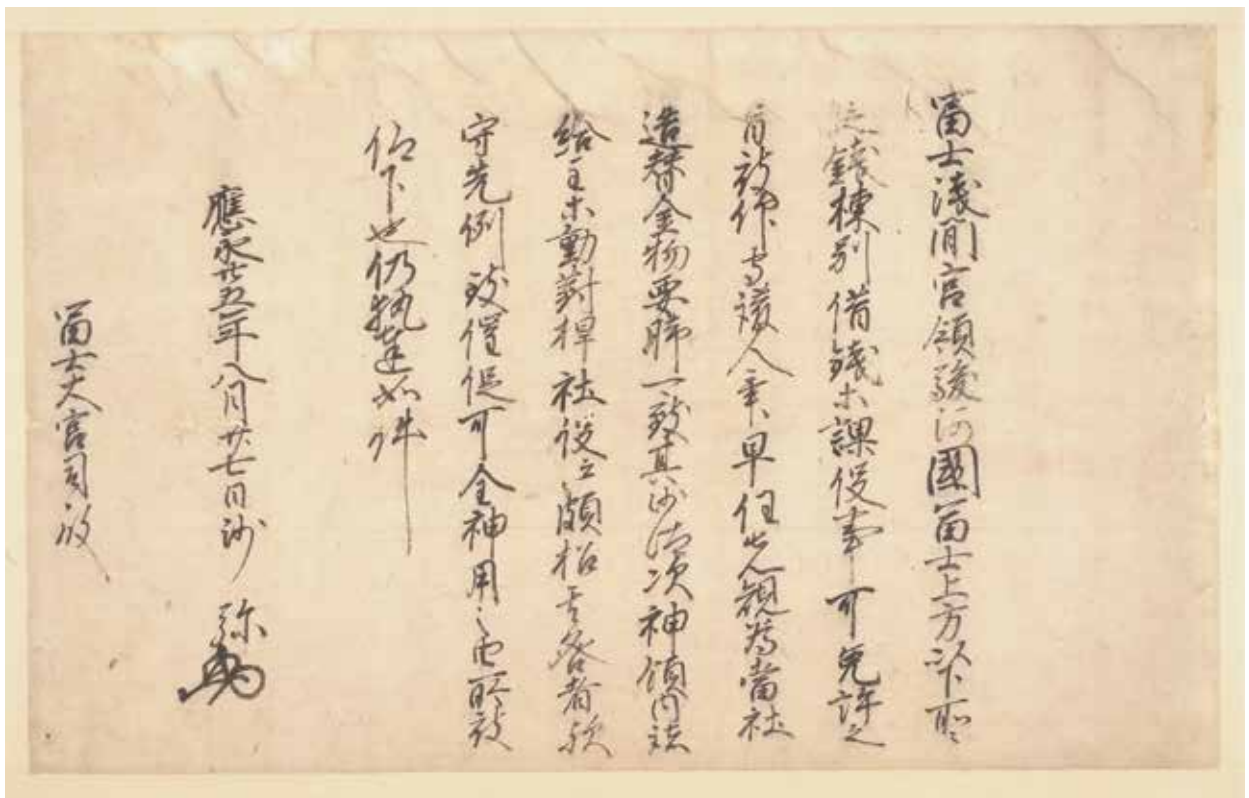 富士淺間宮領駿河國富士上方以下所々
段錢棟別借錢等課役事可免許之
旨被仰守護人畢早任先規為當社
造替金物要脚一致其沙汰次神領内諸
給主等動對捍社役云頗招其咎者歟
守先例致催促可全神用之由所被
仰下也仍執達如件
應永廿五年八月廿七日沙弥
富士大宮司殿